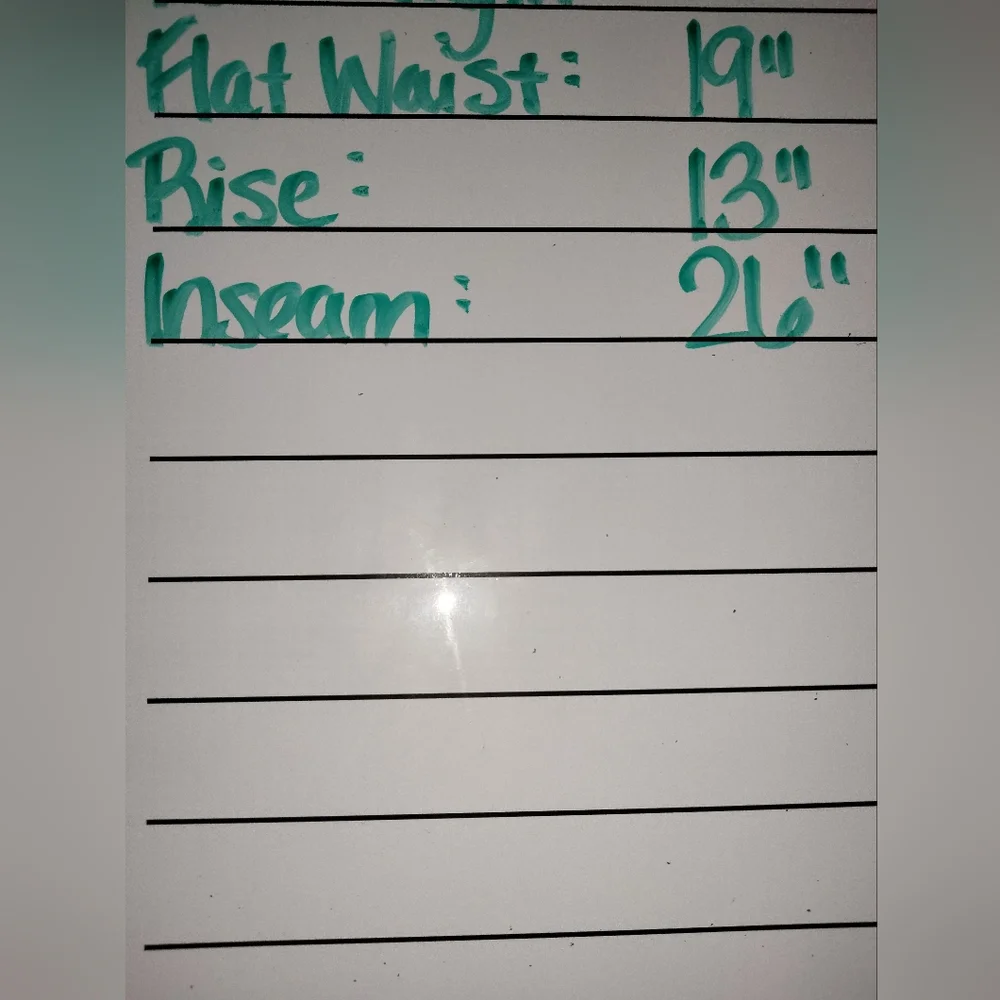 Flat Waist: 19"
Rise: 13"
Inseam: 26"